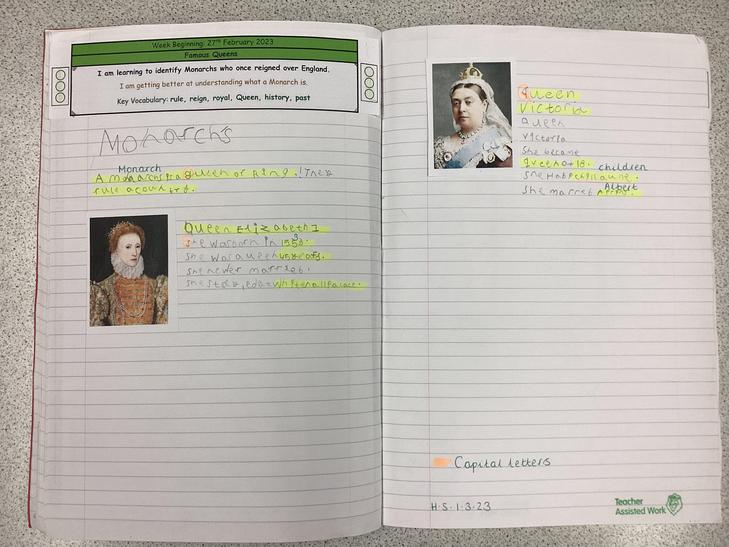 Week Beginning: 27th February 2023
Famous Queens
I am learning to identify Monarchs who once reigned over England.
I am getting better at understanding what a Monarch is.
Key Vocabulary: rule, reign, royal, Queen, history, past
Monarchs
Monarch
A is a queen or king. They
rule a
Queen Elizabeth I
she was born in
she was a queen
she never married.
she at
Queen
Victoria
Queen
Victoria
she became
queen at 18. children
she had
Albert
she
Capital letters
H.S. 1.3.23
Teacher
Assisted Work